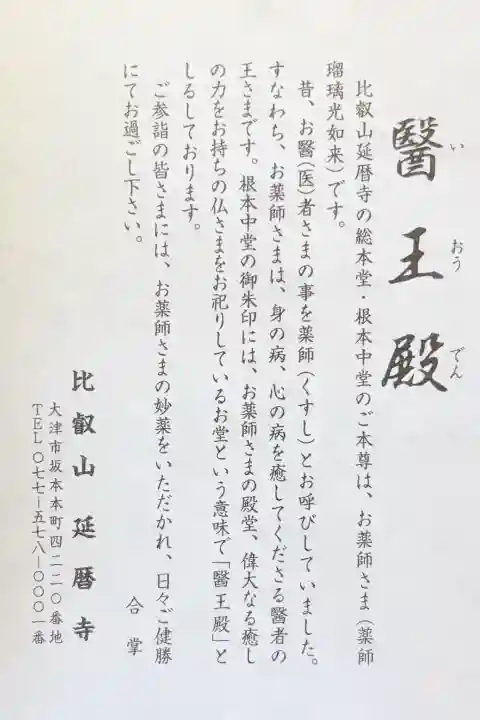 醫王殿
いおうでん
比叡山延暦寺の総本堂・根本中堂のご本尊は、お薬師さま(薬師
瑠璃光如来)です。
昔、お醫(医)者さまの事を薬師(くすし)とお呼びしていました。
すなわち、お薬師さまは、身の病、心の病を癒してくださる醫者の
王さまです。根本中堂の御朱印には、お薬師さまの殿堂、偉大なる癒し
の力をお持ちの仏さまをお祀りしているお堂という意味で「醫王殿」と
しるしております。
ご参詣の皆さまには、お薬師さまの妙薬をいただかれ、日々ご健勝
にてお過ごし下さい。
合掌
比叡山延暦寺
大津市坂本本町四二二〇番地
TEL〇七七―五七八―〇〇〇一番